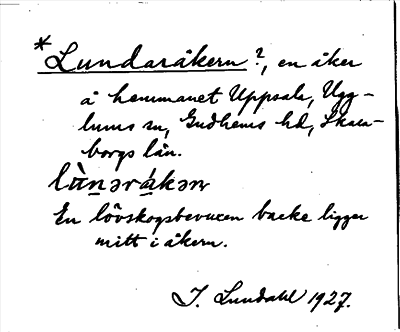 *Lundaråkern?, en åker
å hemmanet Uppsala, Ugg-
lums sn, Gudhems hd, Skara-
borgs län.
lùn̲ərák̲ən
En lövskogsbevuxen backe ligger
mitt i åkern.
J. Lundahl 1927.